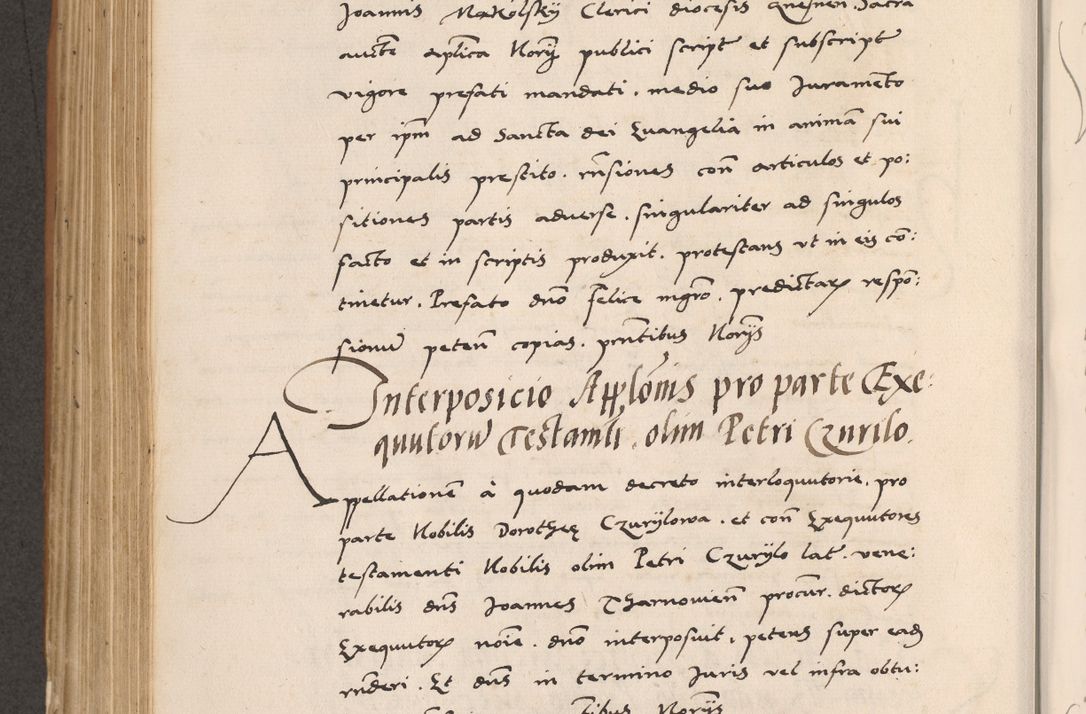 Joannis Makolsky Clerici diocesis Gnesnen. Sacra
aucte aplica Norÿ publici script et subscript
vigore prefati mandati. medio suo Juramento
per ipm ad Sancta dei Euangelia in animam sui
principalis prestito. rnsiones con articulos et po:
sitiones partis aduerse. singulariter ad singulos
facto et in scriptis produxit. protestans vt in eis con:
tinetur. Prefato dno felice ingro. predictaꝝ respon:
sionu peten copias. prntibus Norÿs
Interposicio Applonis pro parte Exe:
quutoru Testamti. olim Petri Czurilo.
Appellationem à quodam decreto interloquutorie. pro
parte Nobilis Dorotheę Czurÿlowa. et con Exequutores
testamenti Nobilis olim Petri Czurÿlo lat. vene:
rabilis dns Joannes Tharnowien procur. dictoꝝ
Exequutoꝝ noie. dno interposuit, petens super eadꝫ
rnderi. Et dns in termino Juris vel infra obtu:
tibus Norÿs